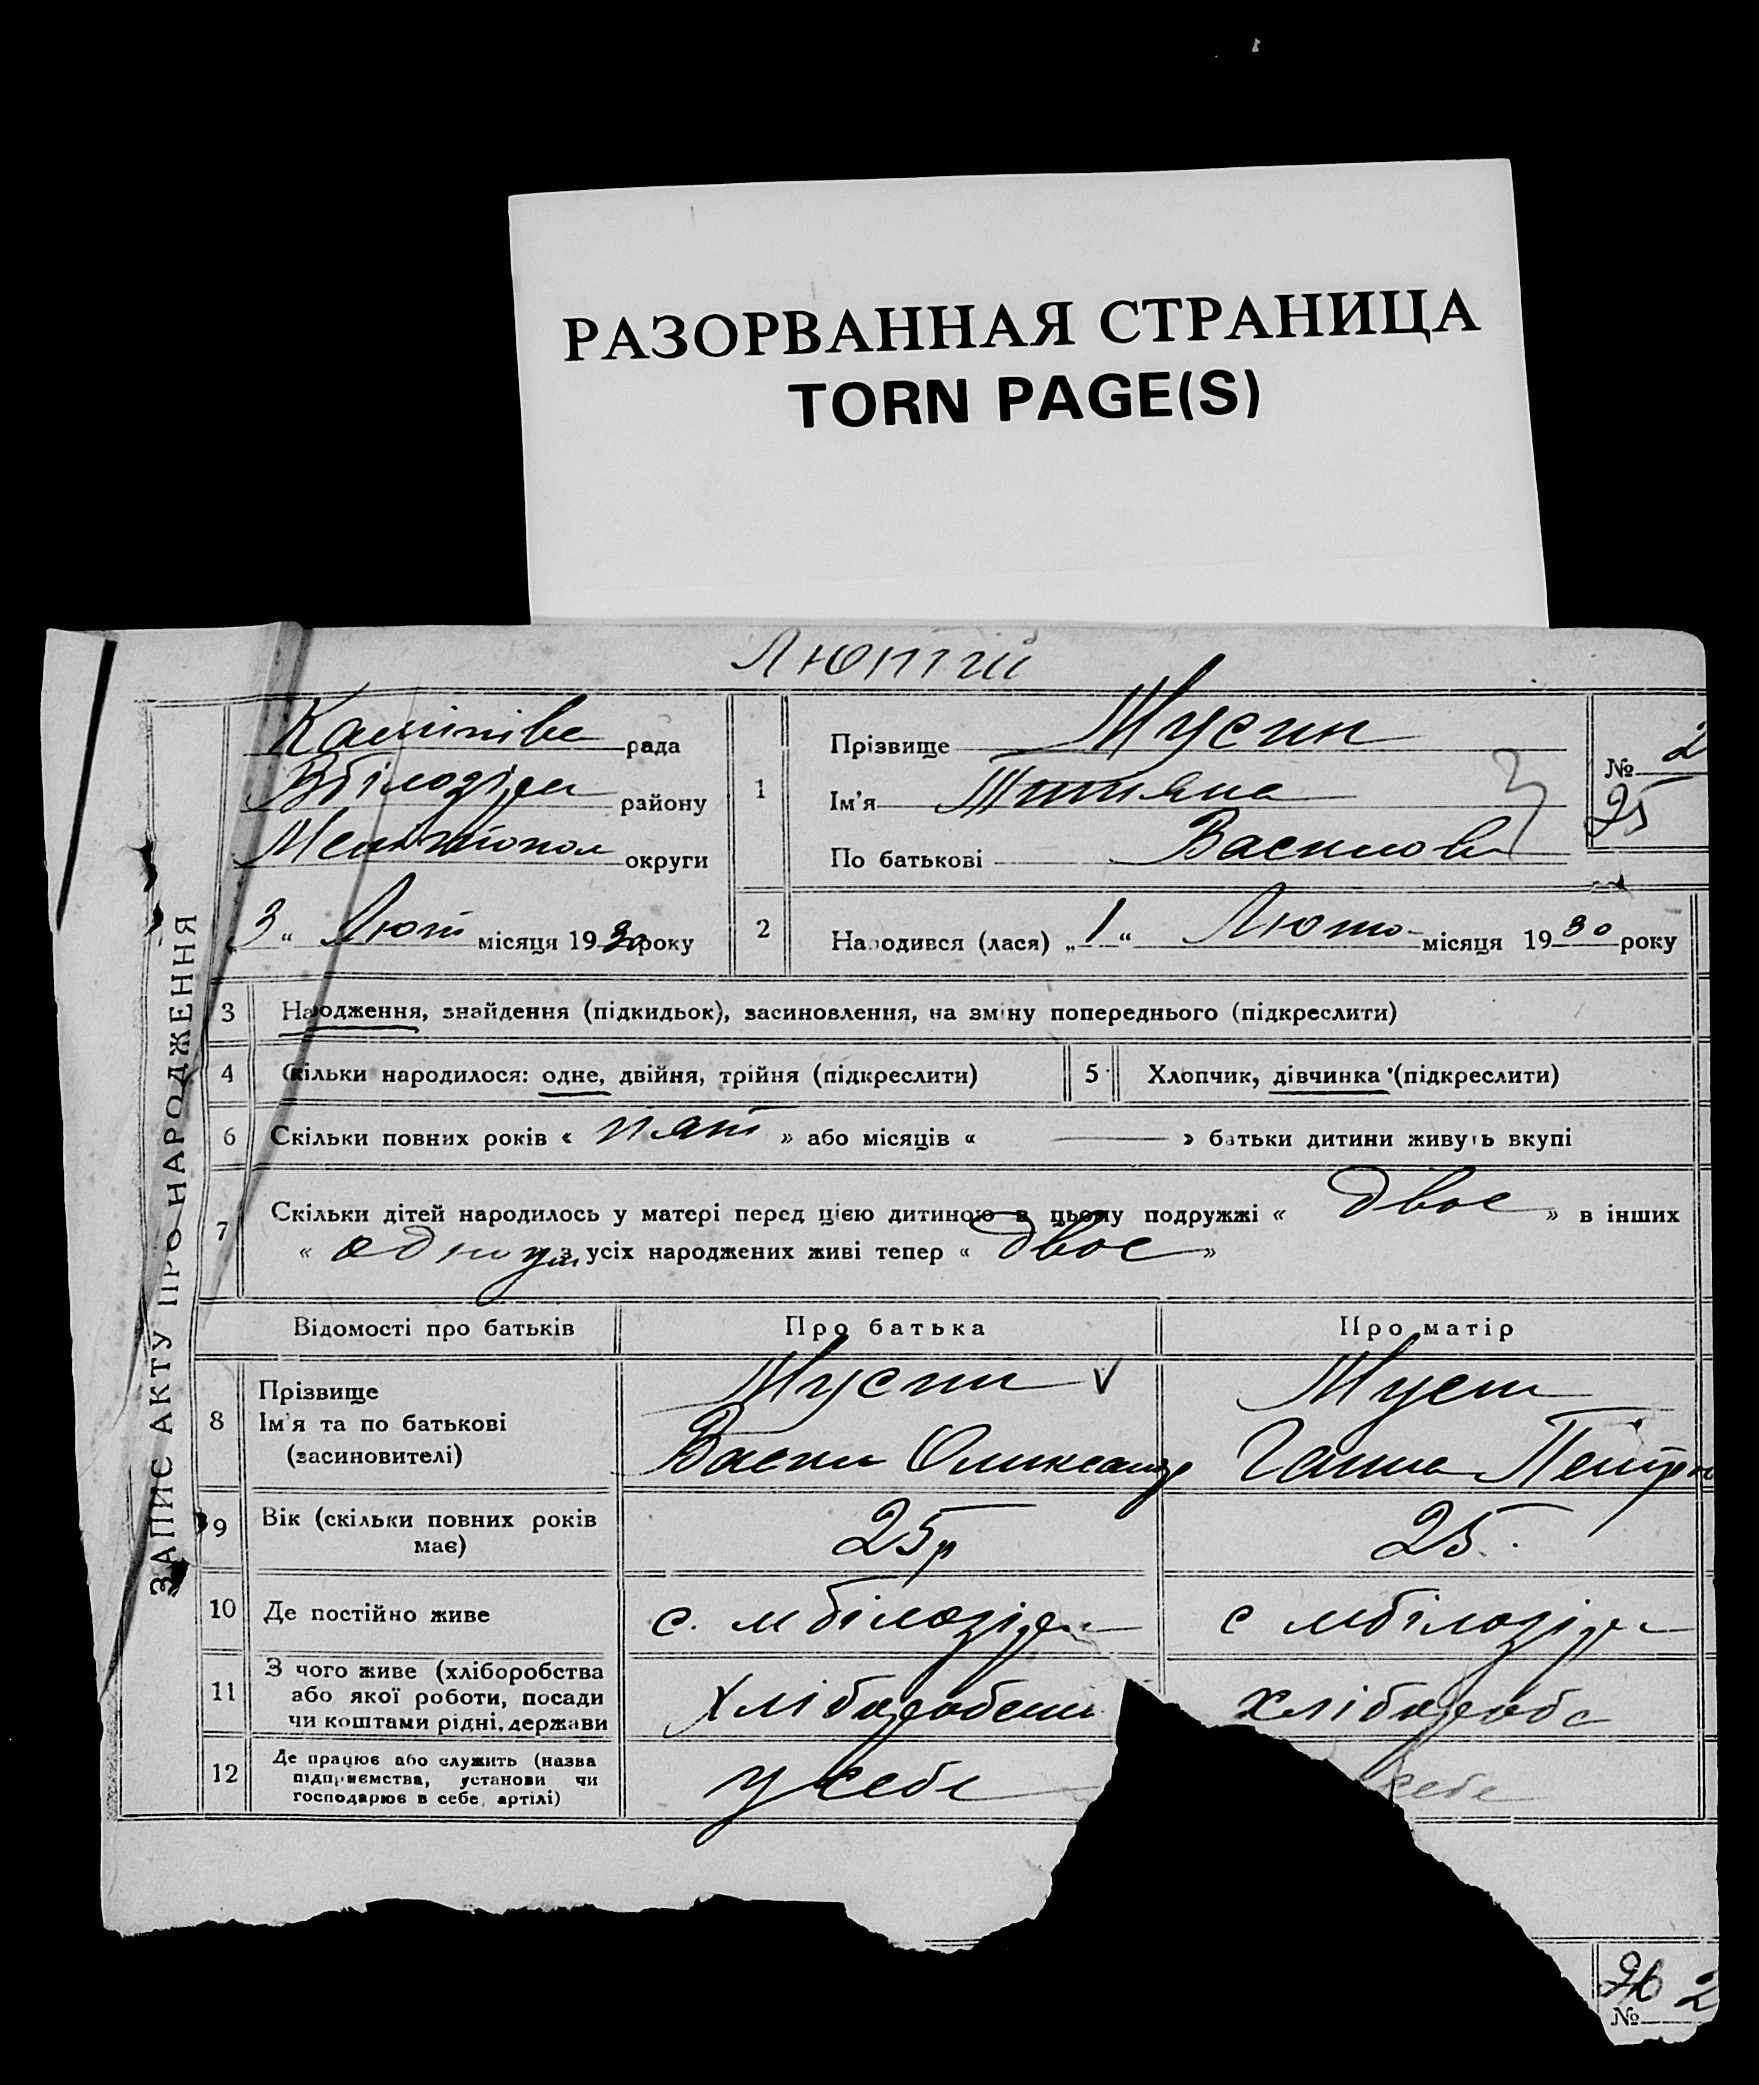 РАЗОРВАННАЯ СТРАНИЦА
TORN PAGE(S)
Лютий
ЗАПИС АКТУ ПРО НАРОДЖЕННЯ
рада
Вбілозірк району
Мелитопол округи
3 “ Лют місяця 1930 року
1
Прізвище Мусин
Ім'я Титяна
По батькові Василов
№ 2
25
2
Народився (лася) „ 1 “ Люто місяця 1930 року
3 Народження, знайдення (підкидьок), засиновлення, на зміну попереднього (підкреслити)
4 Скільки народилося: одне, двійня, трійня (підкреслити)
5 Хлопчик, дівчинка (підкреслити)
6 Скільки повних років « пять » або місяців « — » батьки дитини живуть вкупі
7 Скільки дітей народилось у матері перед цією дитиною в цьому подружжі « двое » в інших
« одному з усіх народжених живі тепер « двое »
Відомості про батьків Про батька Про матір
8 Прізвище
Ім'я та по батькові
(засиновителі)
Мусин
Васил Олександр
Мусин
Ганна Петро
9 Вік (скільки повних років
має)
25р
25.
10 Де постійно живе
с. мбілозірк
с мбілозірк
11 З чого живе (хліборобства
або якої роботи, посади
чи коштами рідні, держави
хлібороб
12 Де працює або служить (назва
підприємства, установи чи
господарює в себе, артілі)
у себе
себе
26 2
№